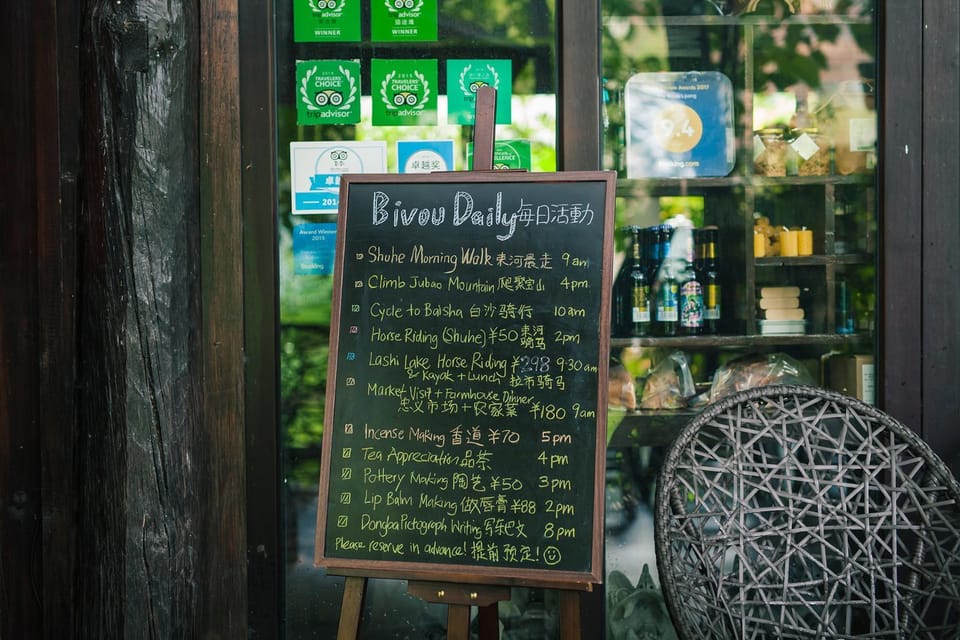 WINNER
WINNER
TRAVELERS' CHOICE
tripadvisor
TRAVELERS' CHOICE
tripadvisor
卓越奖
Award Winner
2015
Booking
Awards 2017
9.4
Booking.com
Bivou Daily 每日活動
Shuhe Morning Walk 束河晨走 9am
Climb Jubao Mountain 爬聚宝山 4pm
Cycle to Baisha 白沙骑行 10am
Horse Riding (Shuhe) ¥50 束河骑马 2pm
Lashi Lake Horse Riding ¥298 9:30am
& Kayak + Lunch 拉市骑马
Market Visit + Farmhouse Dinner
忠义市场+农家菜 ¥180 9am
Incense Making 香道 ¥70 5pm
Tea Appreciation 品茶 4pm
Pottery Making 陶艺 ¥50 3pm
Lip Balm Making 做唇膏 ¥88 2pm
Dongba Pictograph Writing 写东巴文 8pm
Please reserve in advance! 提前预定!